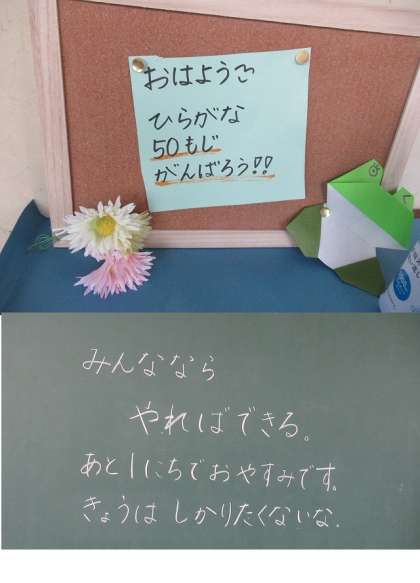 おはようございます
ひらがな
50もじ
がんばろう!!
みんななら
やればできる。
あと1にちでおやすみです。
きょうは しかりたくないな.